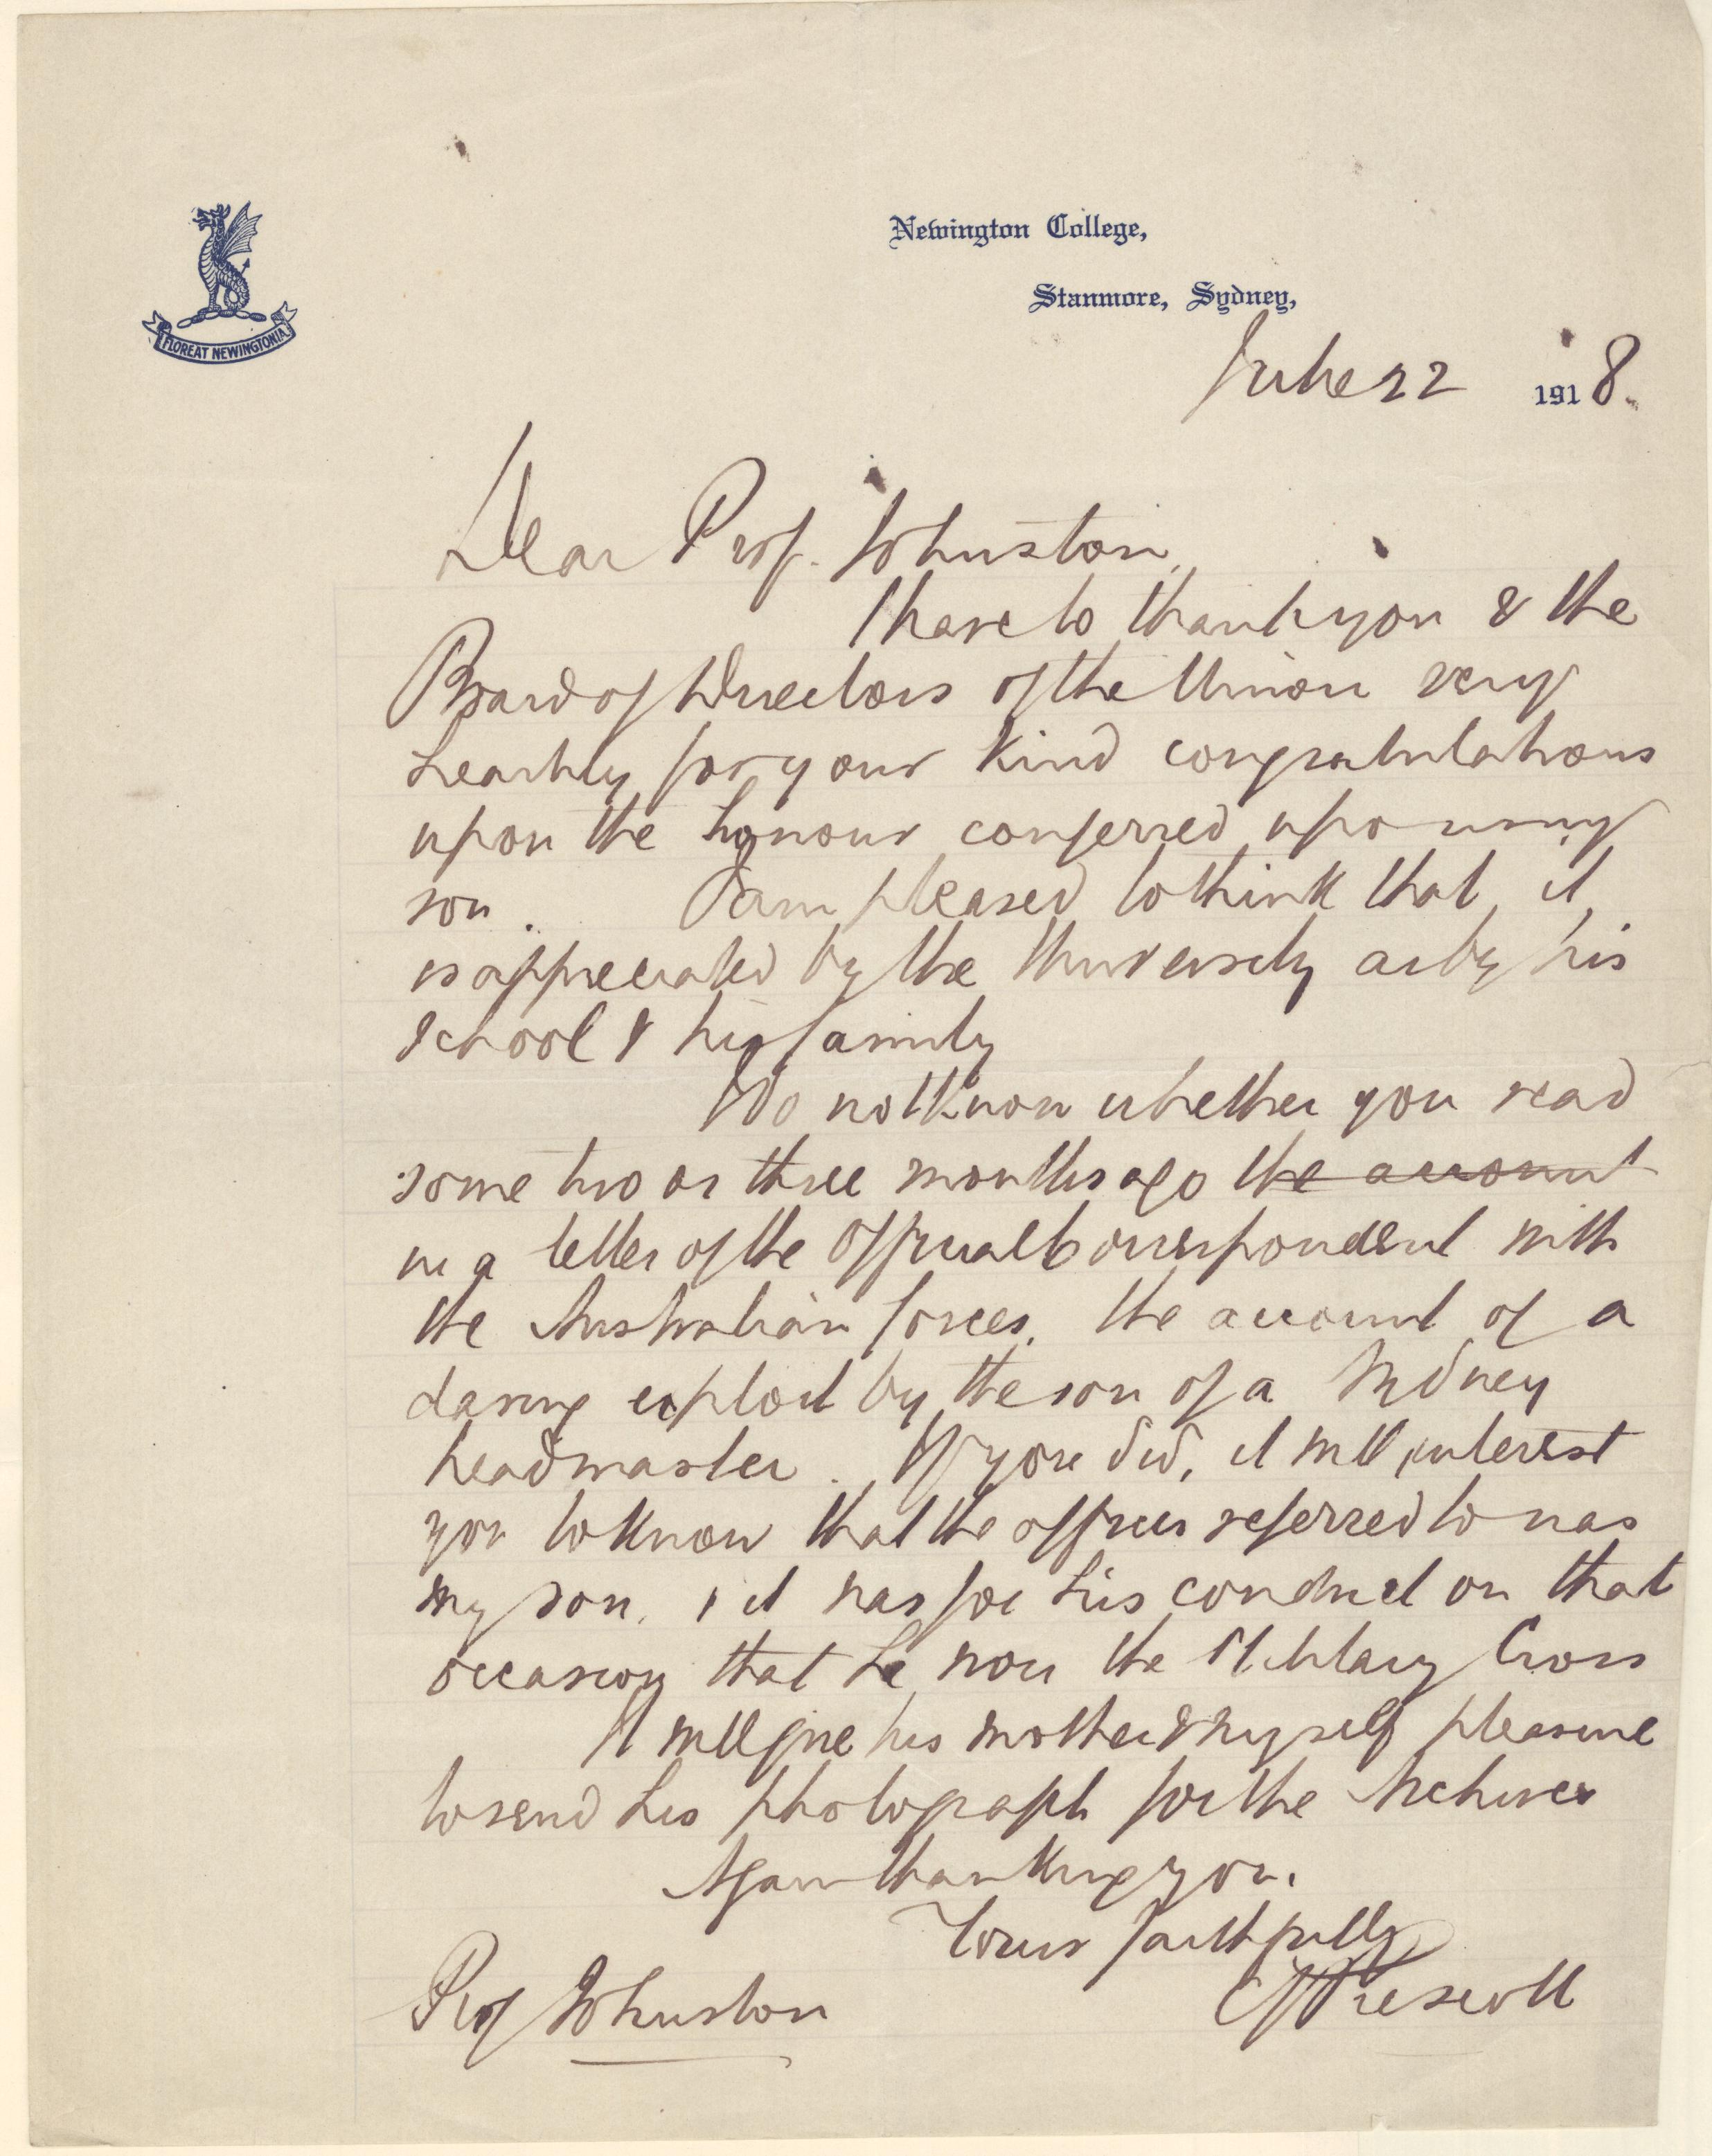 FLOREAT NEWINGTONIA
Newington College,
Stanmore, Sydney,
June 22 1918.
Dear Prof. Johnston,
I have to thank you & the
Board of Directors of the Union very
heartily for your kind congratulations
upon the honour conferred upon my
son. I am pleased to think that it
is appreciated by the University as by his
school & his family
I do not know whether you read
some two or three months ago the account
in a letter of the Official Correspondent with
the Australian forces, the account of a
daring exploit by the son of a Sydney
headmaster. If you did, it will interest
you to know that the officer referred to was
my son, & it was for his conduct on that
occasion that he won the Military Cross
It will give his mother & myself pleasure
to send his photograph for the Archives
Again thanking you,
Yours faithfully
CJPrescott
Prof Johnston